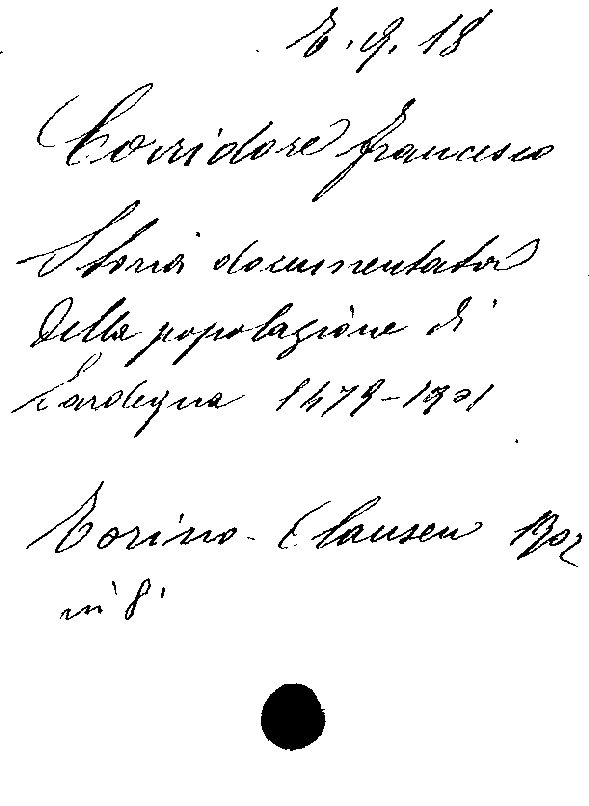 E. 9. 18
Corridore Francesco
Storia documentata
della popolazione di
Sardegna 1479-1901
Torino - Clausen 1902
in 8°